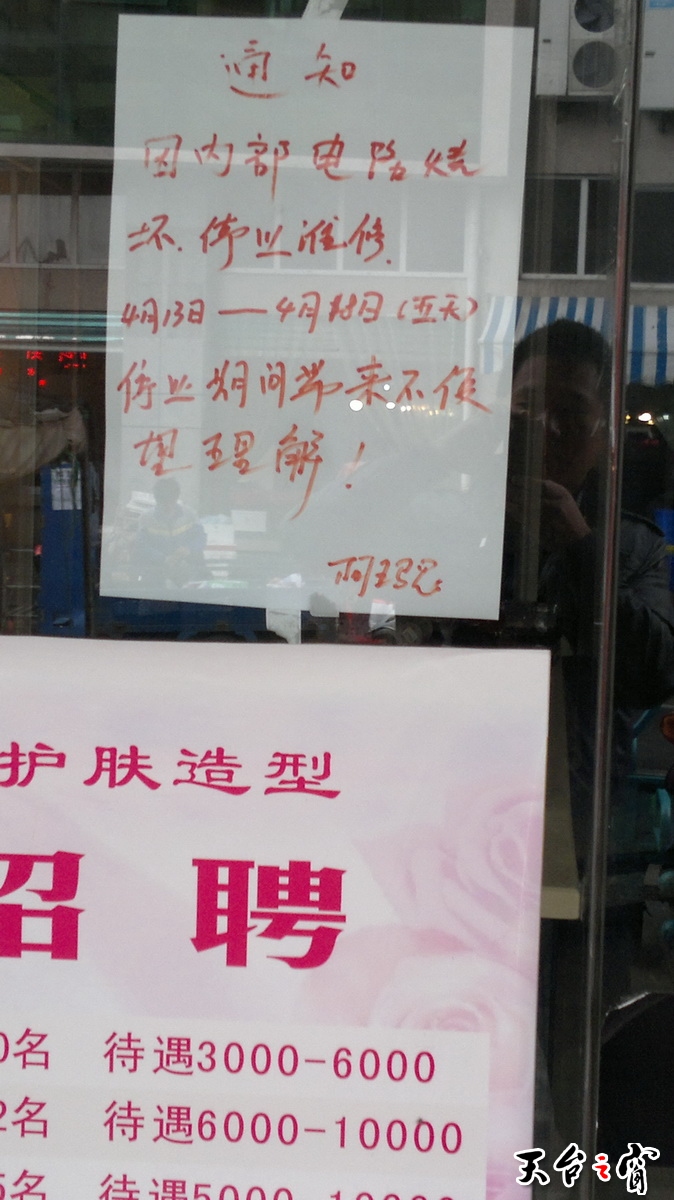 通知
因内部电路烧
坏.停业维修.
4月13日——4月18日(五天)
停业期间带来不便
望理解!
护肤造型
招聘
0名 待遇3000-6000
2名 待遇6000-10000
5名 待遇5000-10000
天台之窗